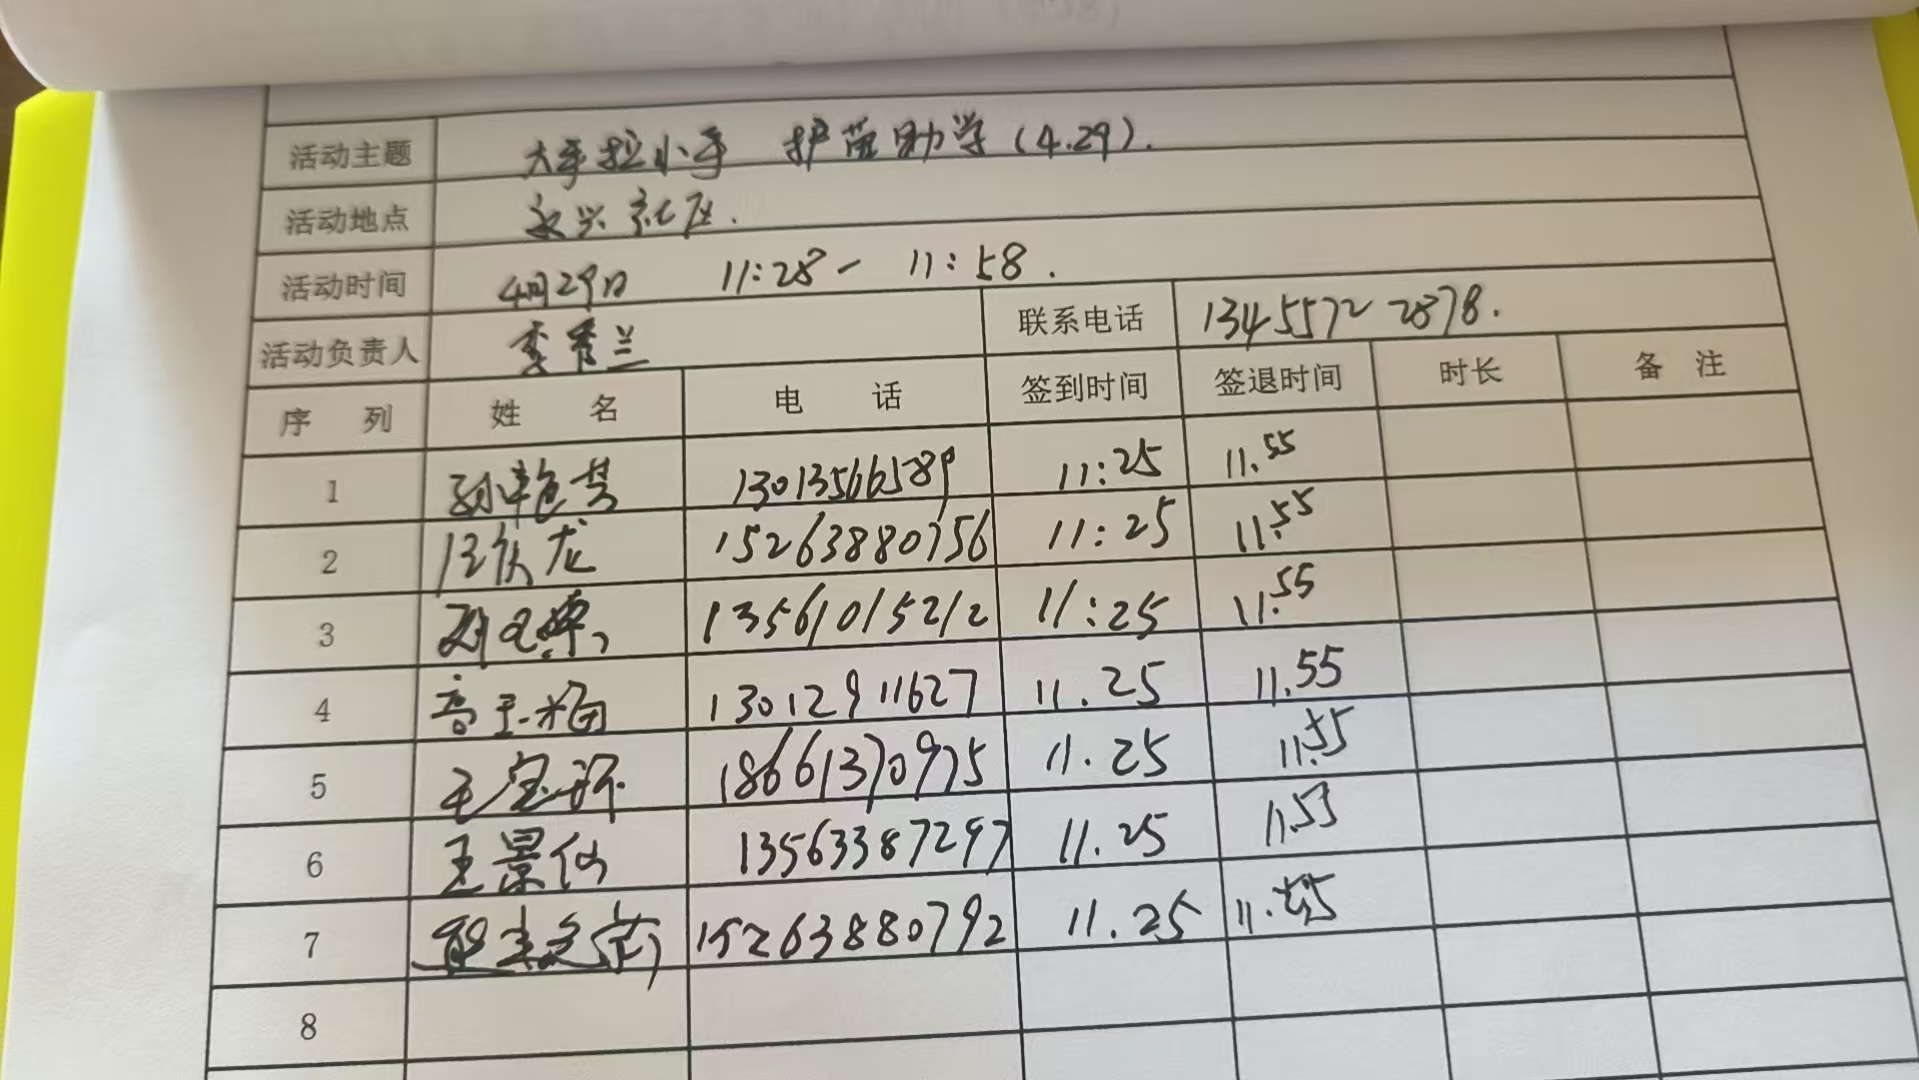 活动主题 大手拉小手 护苗助学(4.29).
活动地点 永兴社区.
活动时间 4月29日 11:28 - 11:58.
活动负责人 李秀兰 联系电话 13455722878.
序列 姓名 电话 签到时间 签退时间 时长 备注
1 孙艳芸 13013566589 11:25 11.55
2 龙 15263880756 11:25 11.55
3 13561015212 11:25 11.55
4 高玉梅 13012911627 11.25 11.55
5 王宝环 18661370975 11.25 11.55
6 王景仙 13563387297 11.25 11.53
7 15263880792 11.25 11.55
8